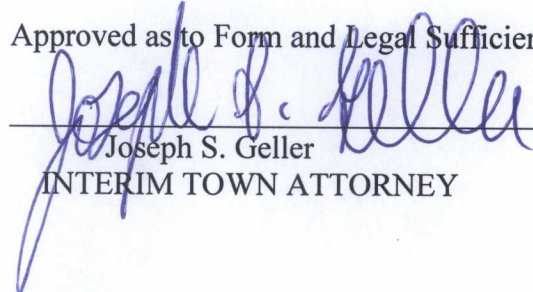 Approved as to Form and Legal Sufficien
Joseph S. Geller
Joseph S. Geller
INTERIM TOWN ATTORNEY